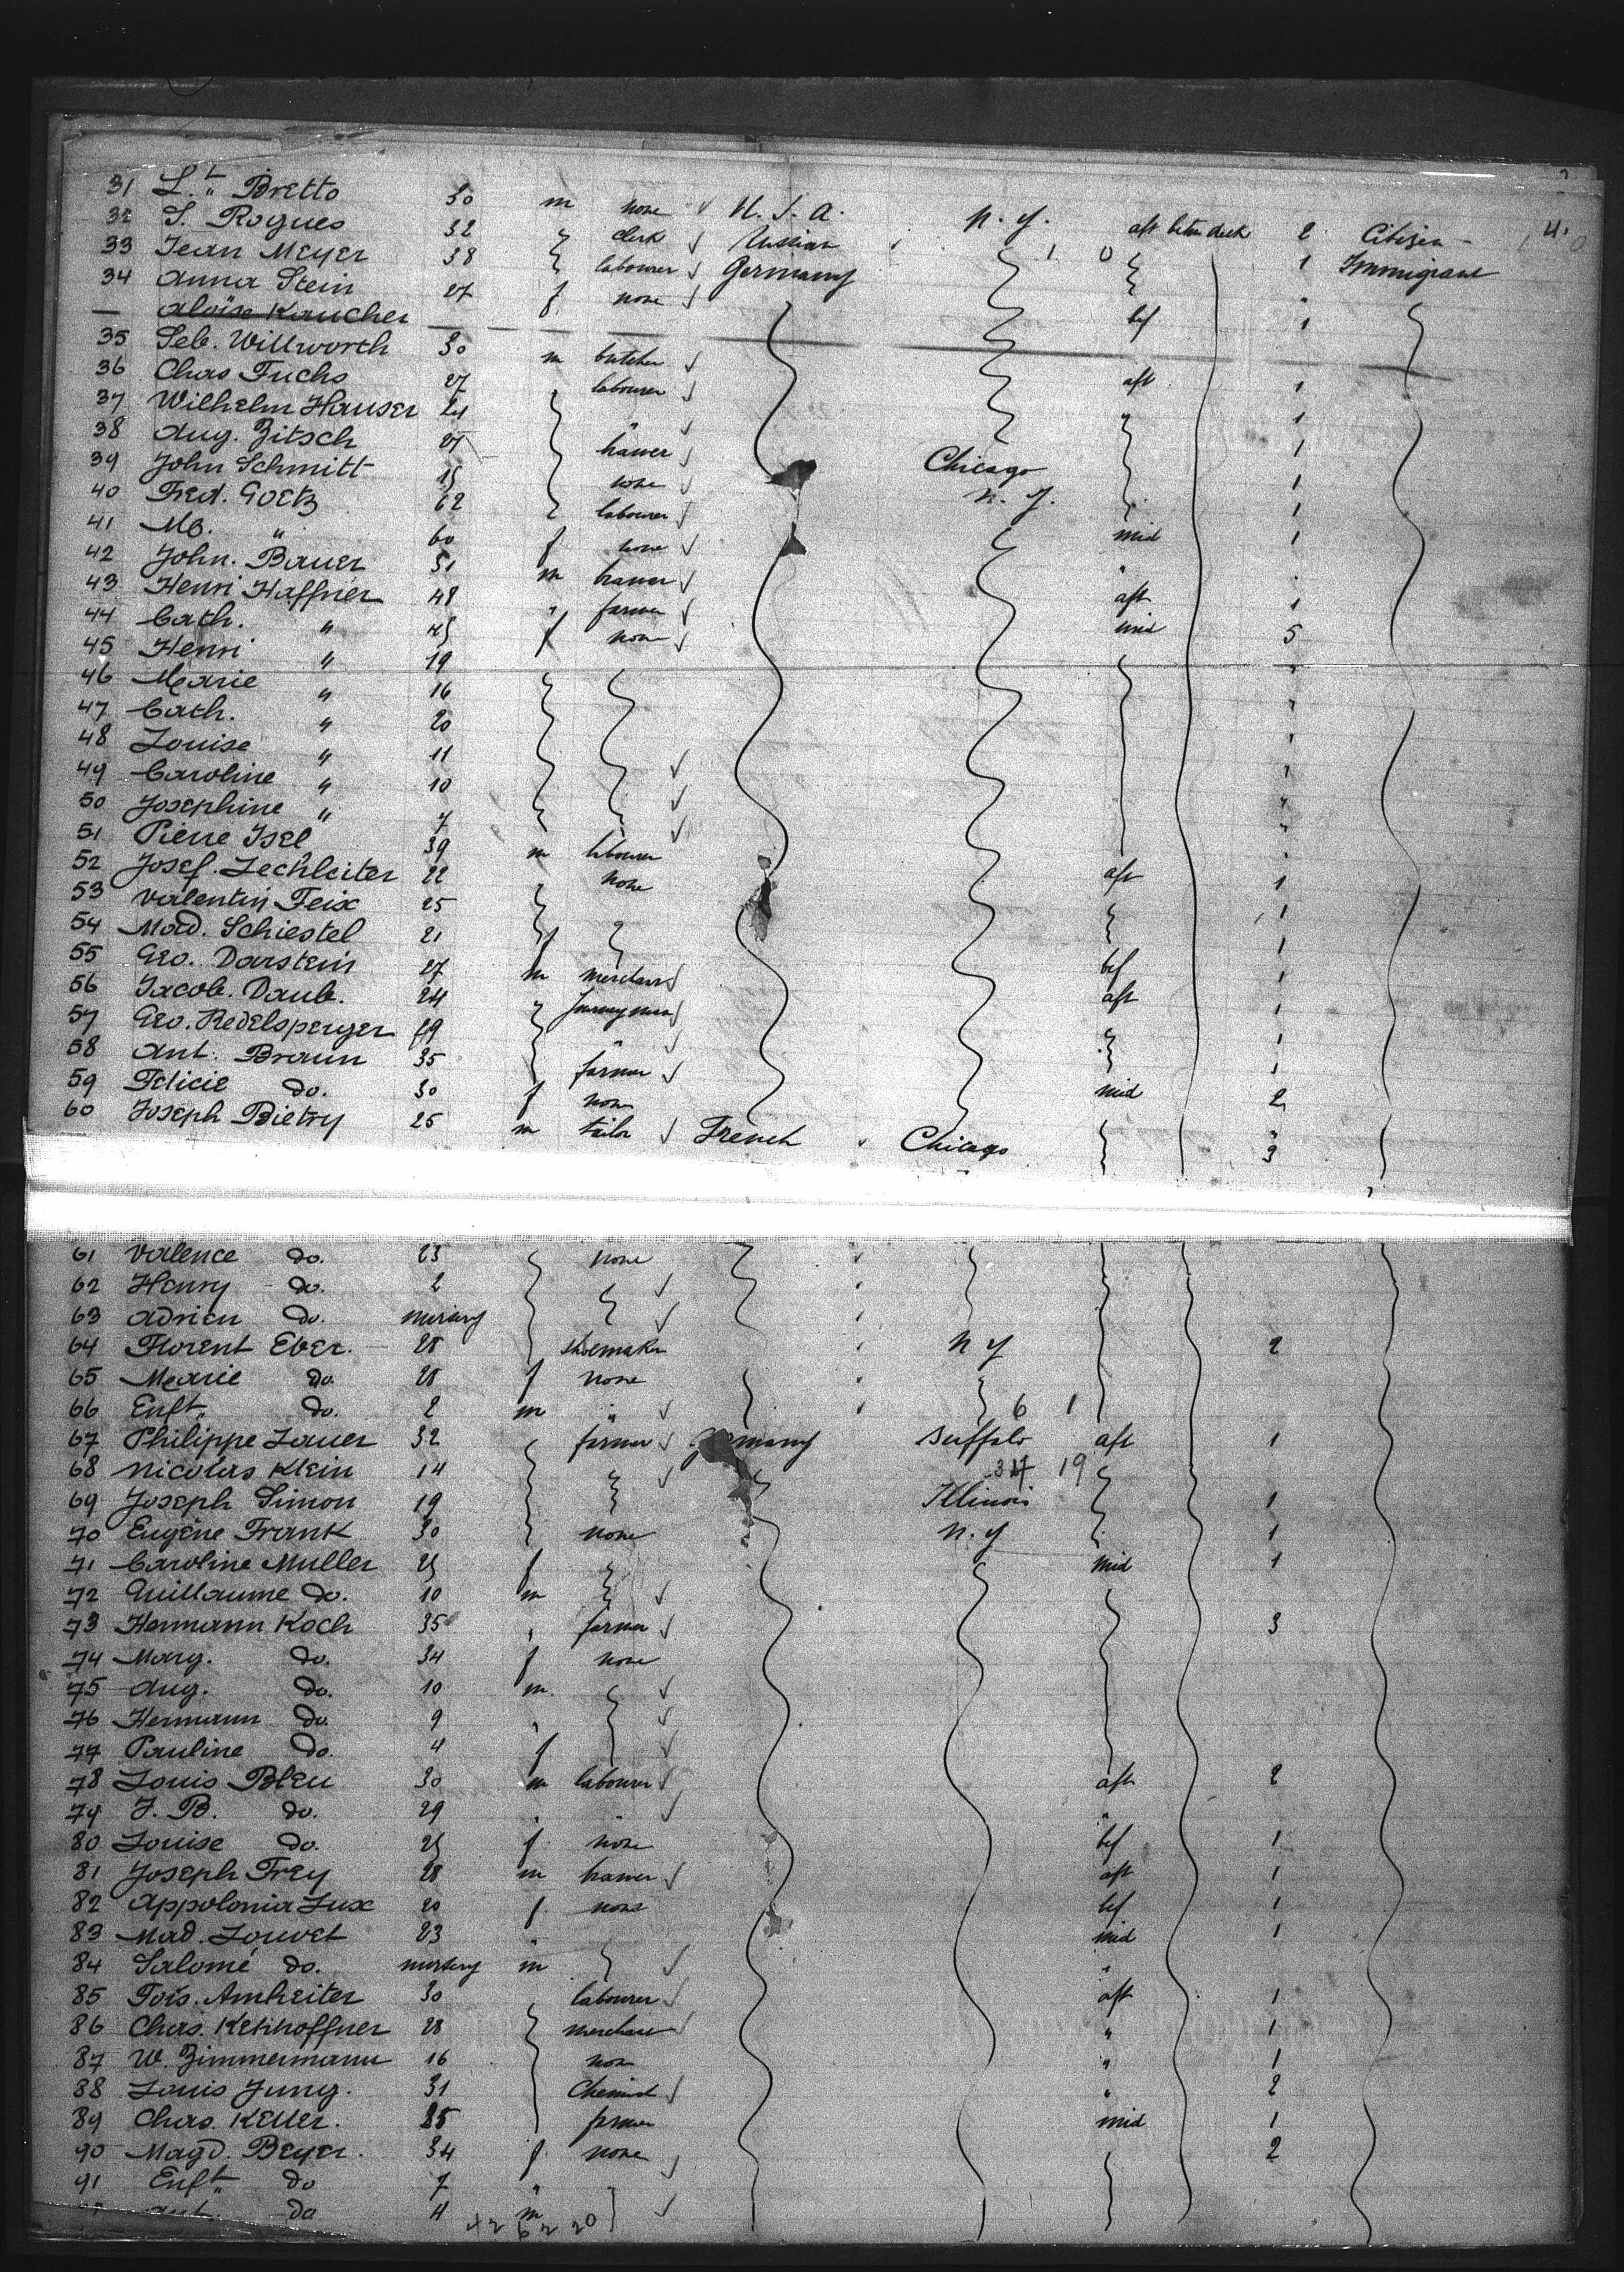 31 Lt. " Bretto 30 m none U. S. A. N. Y. aft betw deck 2 Citizen
32 S. Rogues 32 clerk Russian 1 0 1 Immigrant
33 Jean Meyer 38 labourer Germany
34 Anna Stein 27 f. none bef 1
— Aloïse Kaucher
35 Seb. Willworth 30 m butcher aft 1
36 Chas Fuchs 27 labourer 1
37 Wilhelm Hauser 21 " 1
38 Aug. Zitsch 27 Chicago 1
39 John Schmitt 15 none N. Y. 1
40 Fred. Goetz 62 labourer mid 1
41 Mb. " 60 f none "
42 John. Bauer 51 m aft 1
43 Henri Haffner 48 " farmer mid 5
44 Cath. " 45 f none
45 Henri " 19 "
46 Marie " 16 "
47 Cath. " 20 "
48 Louise " 11 "
49 Caroline " 10 "
50 Josephine " 7 "
51 Pierre Isel 39 m labourer aft 1
52 Josef. Lechleiter 22 none 1
53 Valentin Feix 25 1
54 Mad. Schiestel 21 f bef 1
55 Geo. Darstein 27 m merchant aft 1
56 Jacob. Daub. 24 Journeyman 1
57 Geo. Redelsperger 19 " 1
58 Ant. Braun 35 farmer mid 2
59 Felicie do. 30 f none "
60 Joseph Bietry 25 m tailor French Chicago 3
61 Valence do. 23 none
62 Henry do. 2
63 Adrien do. nursery
64 Florent Eber. 28 shoemaker N Y 2
65 Marie do. 28 f none
66 Enft " do. 2 m " 6 1
67 Philippe Lauer 32 farmer Germany Buffalo aft 1
68 Nicolas Klein 14 34 19
69 Joseph Simon 19 Illinois 1
70 Eugène Frank 30 none N. Y 1
71 Caroline Muller 25 f mid 1
72 Guillaume do. 10 m
73 Hermann Koch 35 " farmer 3
74 Marg. do. 34 f none
75 Aug. do. 10 m.
76 Hermann do. 9 "
77 Pauline do. 4 f
78 Louis Bleu 30 m labourer aft 2
79 J. B. do. 29 " " "
80 Louise do. 25 f. none bef 1
81 Joseph Frey 28 m aft 1
82 Appolonia Lux 20 f. none bef 1
83 Mad. Louvet 23 " mid 1
84 Salomé do. nursery m "
85 Fois. Amheiter 30 labourer aft 1
86 Chas. 28 merchant " 1
87 W. Zimmermann 16 non " 1
88 Louis Jung. 31 Chemist " 2
89 Chas. Keller. 25 farmer mid 1
90 Magd. Beyer. 34 f. none 2
91 Enft " do 7 "
Ant. do 4 m